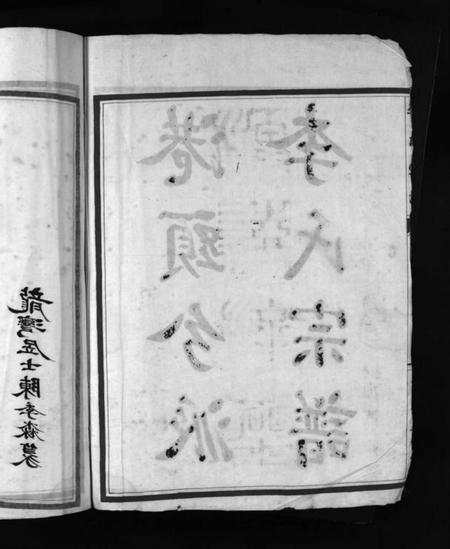 李氏宗譜
港頭分派
龍灣居士陳季㴉篆